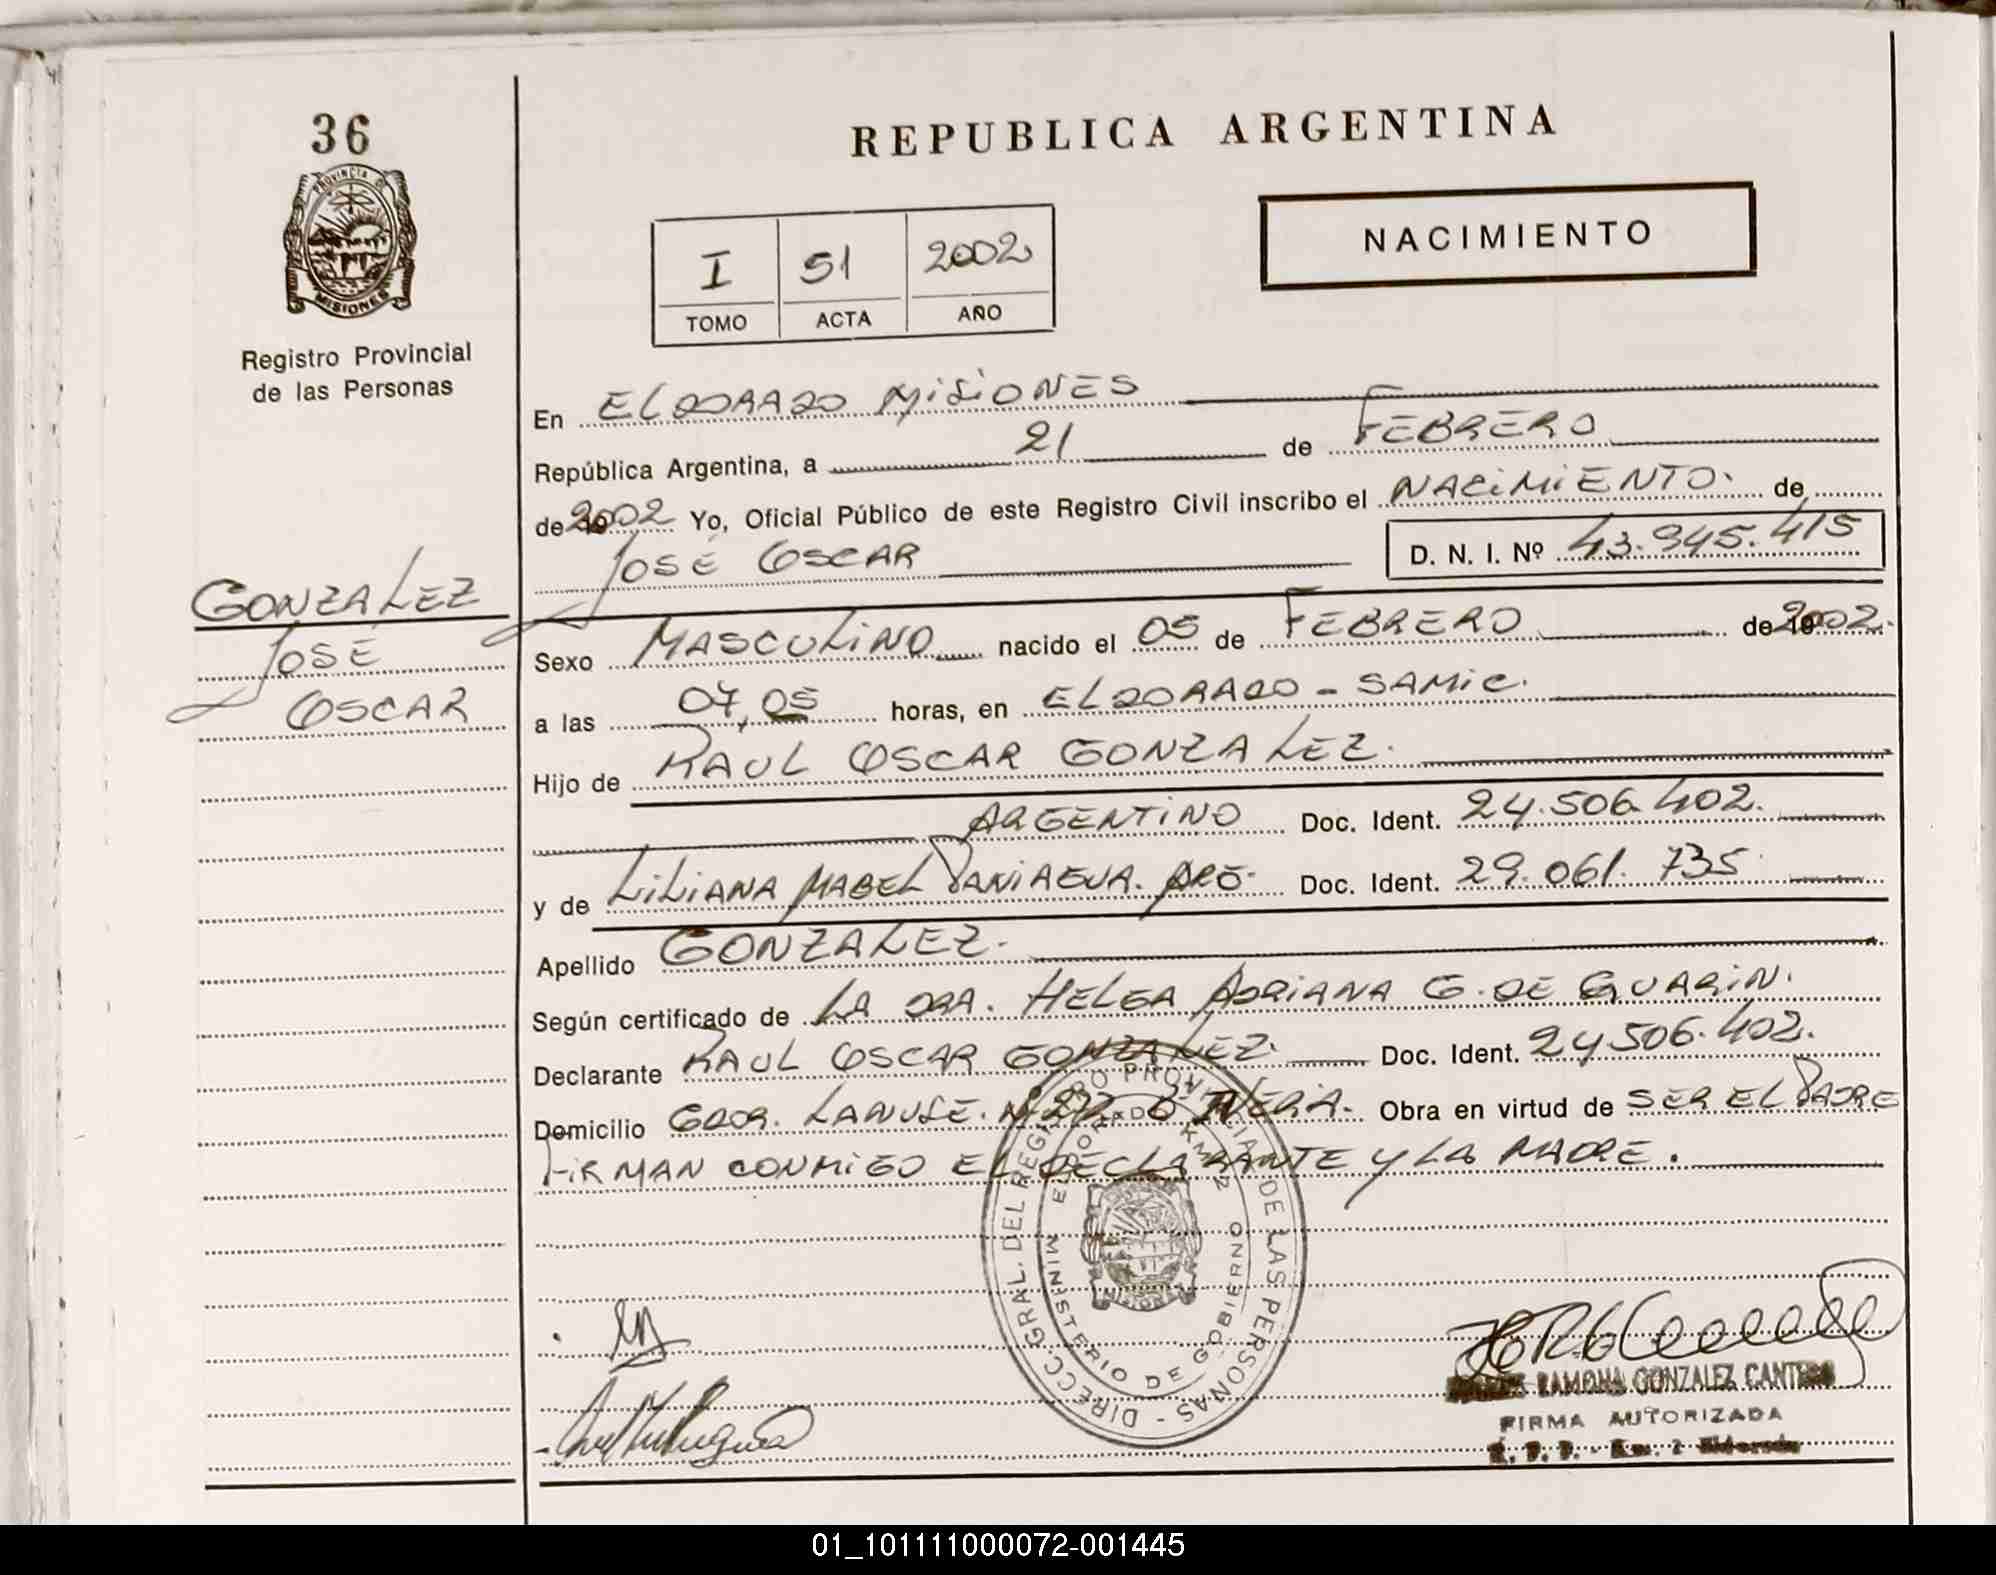 36
PROVINCIA D
MISIONES
Registro Provincial
de las Personas
REPUBLICA ARGENTINA
NACIMIENTO
I 51 2002
TOMO ACTA AÑO
En ELDORADO MISIONES
República Argentina, a 21 de FEBRERO
de 2002 Yo, Oficial Público de este Registro Civil inscribo el NACIMIENTO. de
JOSÉ OSCAR D. N. I. Nº 43.945.415
GONZALEZ
JOSÉ
OSCAR
Sexo MASCULINO nacido el 05 de FEBRERO de 2002.
a las 07,05 horas, en ELDORADO - SAMIC.
Hijo de RAUL OSCAR GONZALEZ.
ARGENTINO Doc. Ident. 24.506.402.
y de LILIANA MABEL PANIAGUA. ARG- Doc. Ident. 29.061.735
Apellido GONZALEZ.
Según certificado de LA DRA. HELGA ADRIANA G. DE GUARIN.
Declarante RAUL OSCAR GONZALEZ. Doc. Ident. 24506.402.
Domicilio GDOR. LANUSE. Obra en virtud de SER EL PADRE
FIRMAN CONMIGO EL DECLARANTE Y LA MADRE.
DIRECC. GRAL. DEL REGISTRO PROVINCIAL DE LAS PERSONAS -
ELDORADO KM. 2
MINISTERIO DE GOBIERNO
MISIONES
RAMONA GONZALEZ CANTERO
FIRMA AUTORIZADA
R. P. P. - Km. 2 Eldorado
01_101111000072-001445